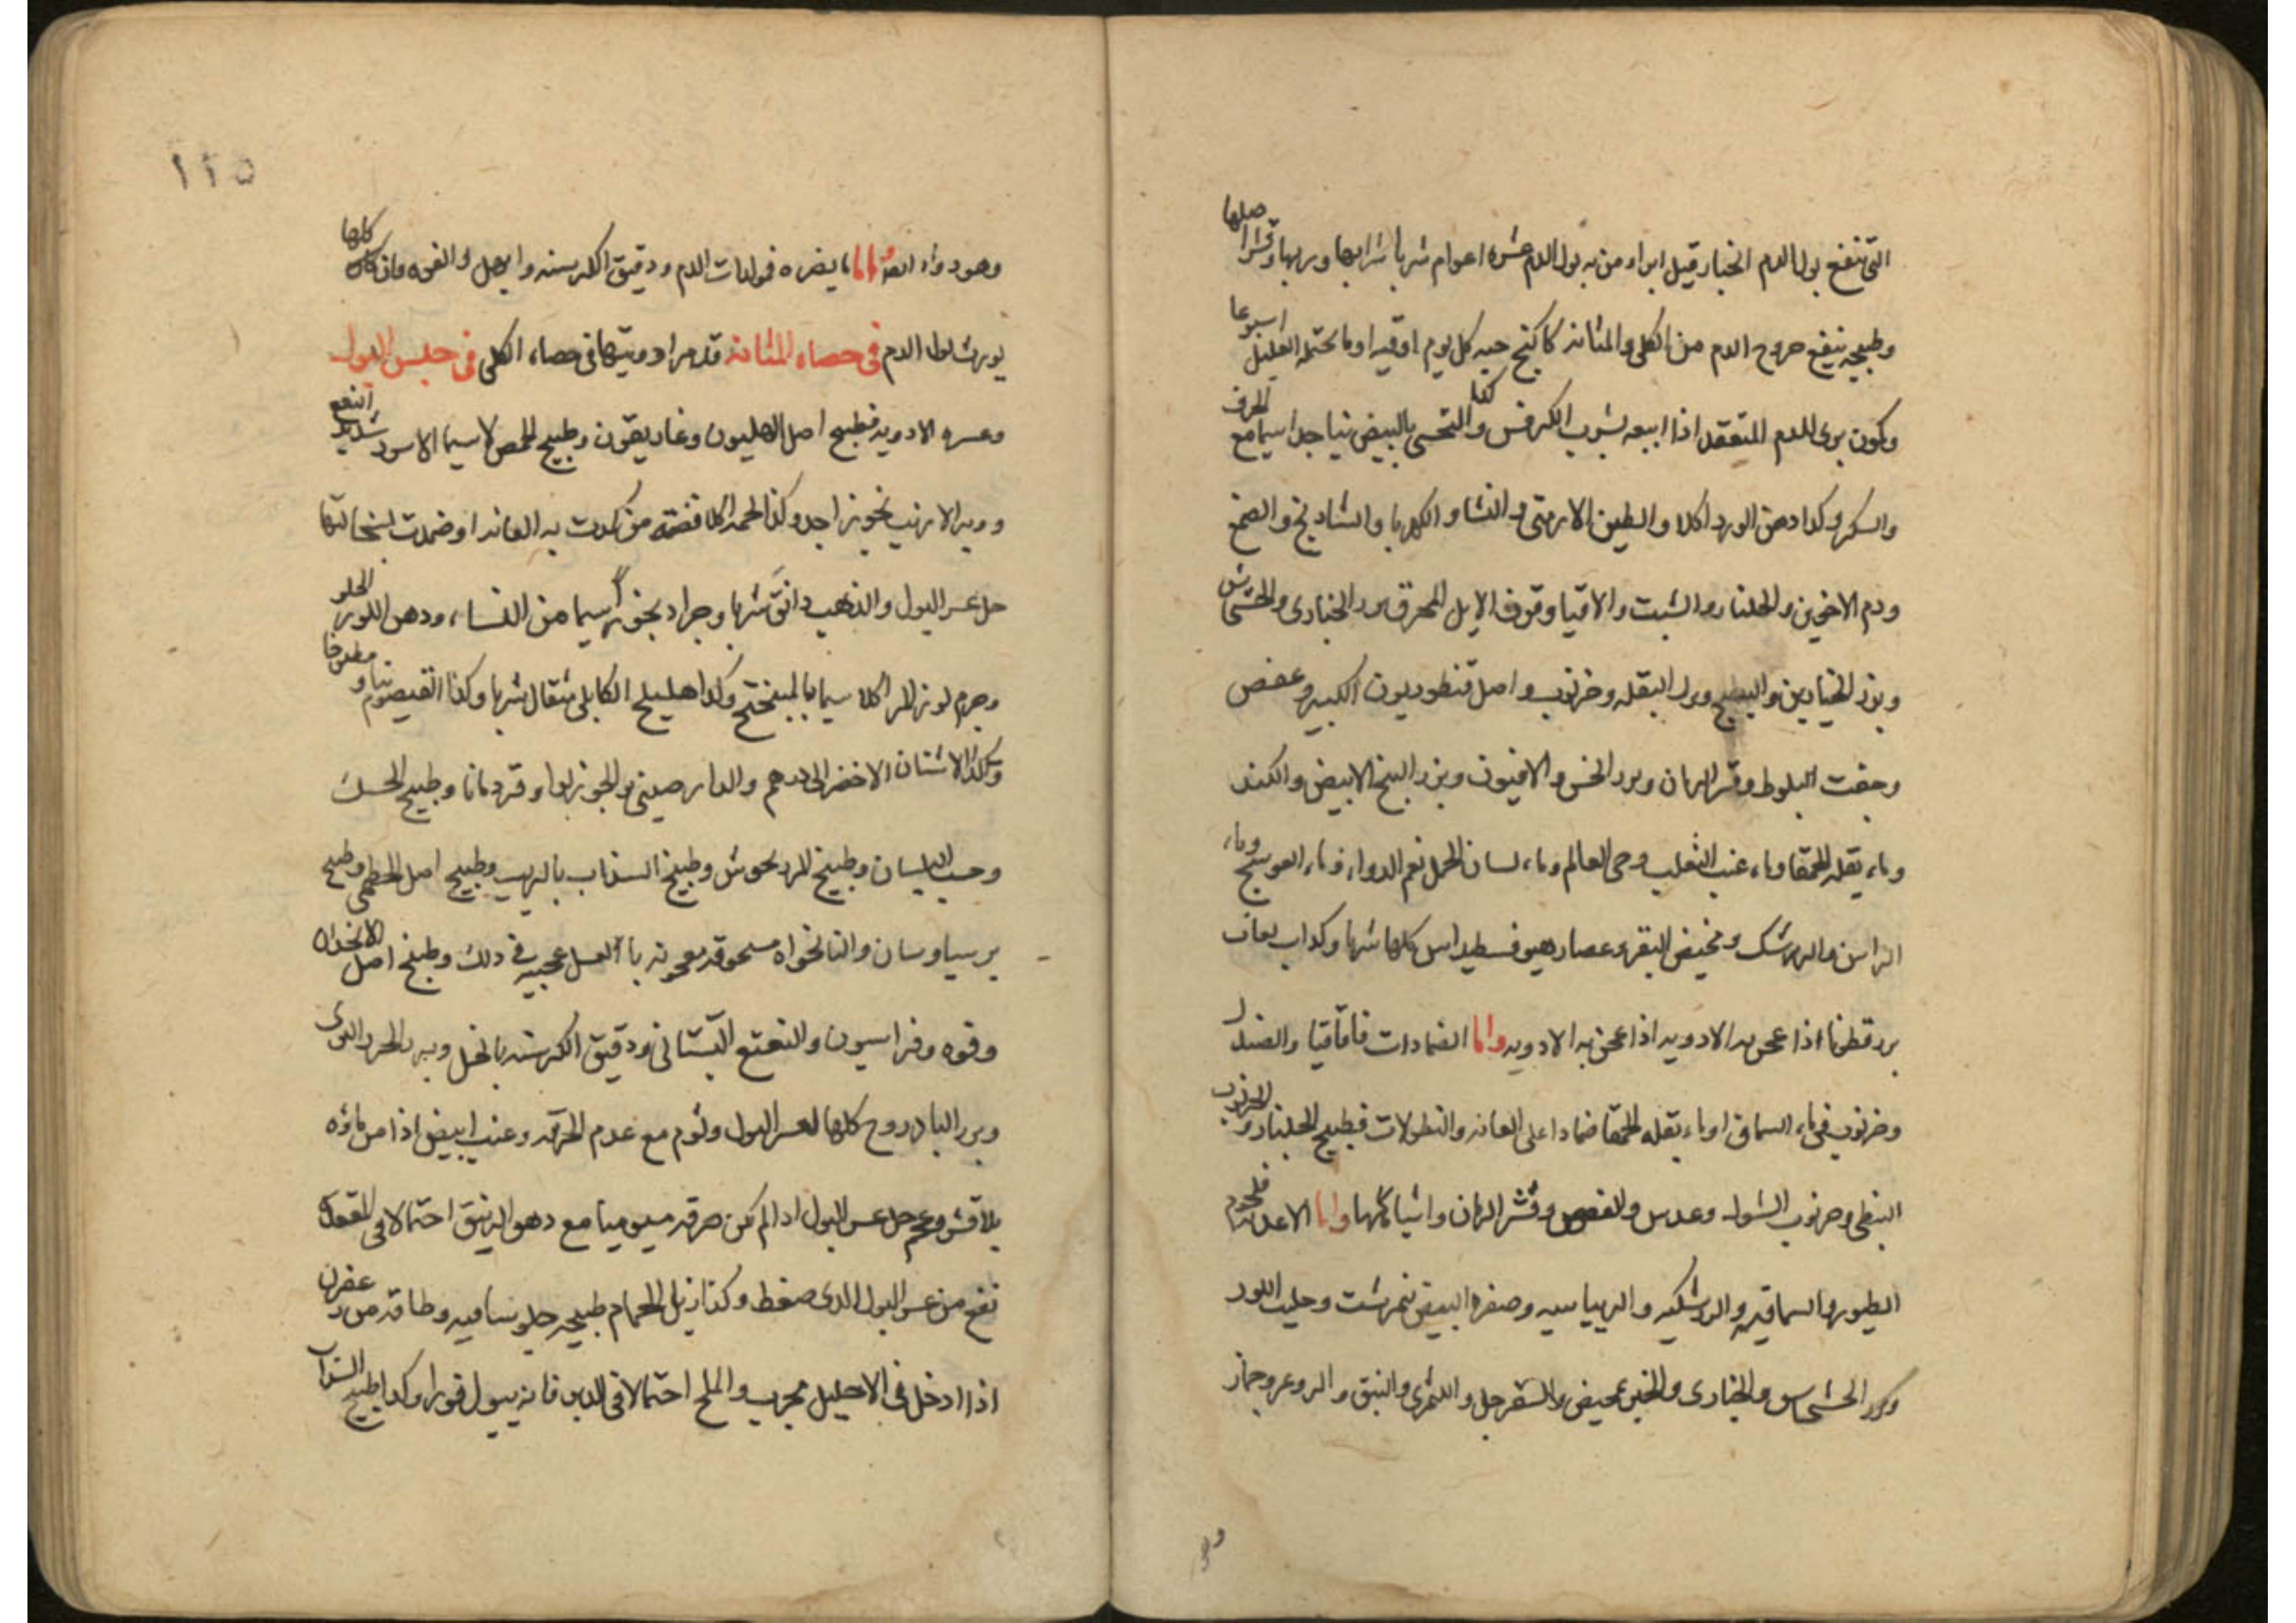 التى تنفع بول الدم الخبار قيل ابراء من به بول الدم عشره اعوام شربا شرابها وربها وقشرا صلها
وطبيخه ينفع خروج الدم من الكلى والمثانه كاكنج حبه كل يوم اوقيه او ما يحتمله العليل اسبوعا
ويكون يرى للدم المتعقد اذا اتبعه بشرب الكرفس وكذا التحسى بالبيض نيا جدا سيما مع الحرف
والسكر وكذا دهن الورد اكلا والطين الارمنى والنشا والكهربا والشادنج والصمغ
ودم الاخوين والجلنار والشبت والاقاقيا وقرن الايل المحرق وبزر الخبازى والخشخاش
وبزر الخيارين والبطيخ وبزر البقله وخرنوب واصل قنطوريون الكبير وعفص
وجفت البلوط وقشر الرمان وبزر الخس والافيون وبزر البنج الابيض والكندر
وماء بقله الحمقا وماء عنب الثعلب وحى العالم وماء لسان الحمل نعم الدواء وماء العوسج وماء
الراسن والزرشك ومخيض البقر وعصاره هيوفسطيداس كلها شربا وكذا لعاب
بزرقطونا اذا عجن به الادويه اذا عجن به الادويه واما الضمادات فاقاقيا والصندل
وخرنوب فى ماء السماق او ماء بقله الحمقا ضمادا على العانه والنطولات فطبيخ الجلنار والخرنوب
النبطى وخرنوب الشوك وعدس والعفص وقشر الرمان واشباهها واما الاغذيه فلحوم
الطيور والسماقيه والزرشكيه والريباسيه وصفره البيض نيمرشت وحليب اللوز
وبزر الخشخاش والخبازى والخبز بمخيض والسفرجل والكمثرى والنبق والزعرور وجمار
وهو
١١٥
وهو دواء واما ما يضره فمولدات الدم ودقيق الكرسنه وابهل والفوه فان كلها
يورث بول الدم فى حصاه المثانه قد مر ادويتها فى حصاء الكلى فى حبس البول
وعسره الادويه فطبيخ اصل الهليون وغاريقون وطبيخ الحمص لا سيما الاسود شديد النفع
ووبر الارنب بخورا جدا وكذا لحمه اكلا فضه من كمدت به العانه او ضمدت بنخالتها
حل عسر البول والذهب دانق شربا وجراد بخورا سيما من النساء ودهن اللوز الحلو
وجرم لوز المر اكلا سيما بالميبختج وكذا هليلج الكابلى مثقال شربا وكذا القيصوم نيا ومطبوخا
وكذا الاشنان الاخضر الى درهم والدارصينى والجوزبوا وقردمانا وطبيخ الحسك
وحب البلسان وطبيخ المردنحوش وطبيخ السذاب بالزيت وطبيخ اصل الخطمى وطبيخ
برسياوسان والنانخواه مسحوقه معجونه بالعسل عجيبه فى ذلك وطبيخ اصل الانجدان
وفوه وفراسيون والنعنع البستانى ودقيق الكرسنه بالخل وبزر الجزر البرى
وبزر الباذروج كلها لعسر البول وثوم مع عدم الحرقه وعنب ابيض اذا مص ماؤه
بلا قشر وعجم حل عسر البول اذا لم يكن حرقه موميا مع دهن الزنبق احتمالا فى المقعد
نفع من عسر البول الذى ضغط وكذا زبل الحمام طبيخه جلوسا فيه وطاقه من زعفران
اذا ادخل فى الاحليل مجرب والملح احتمالا فى الدبر فانه يبول فورا وكذا طبيخ السذاب